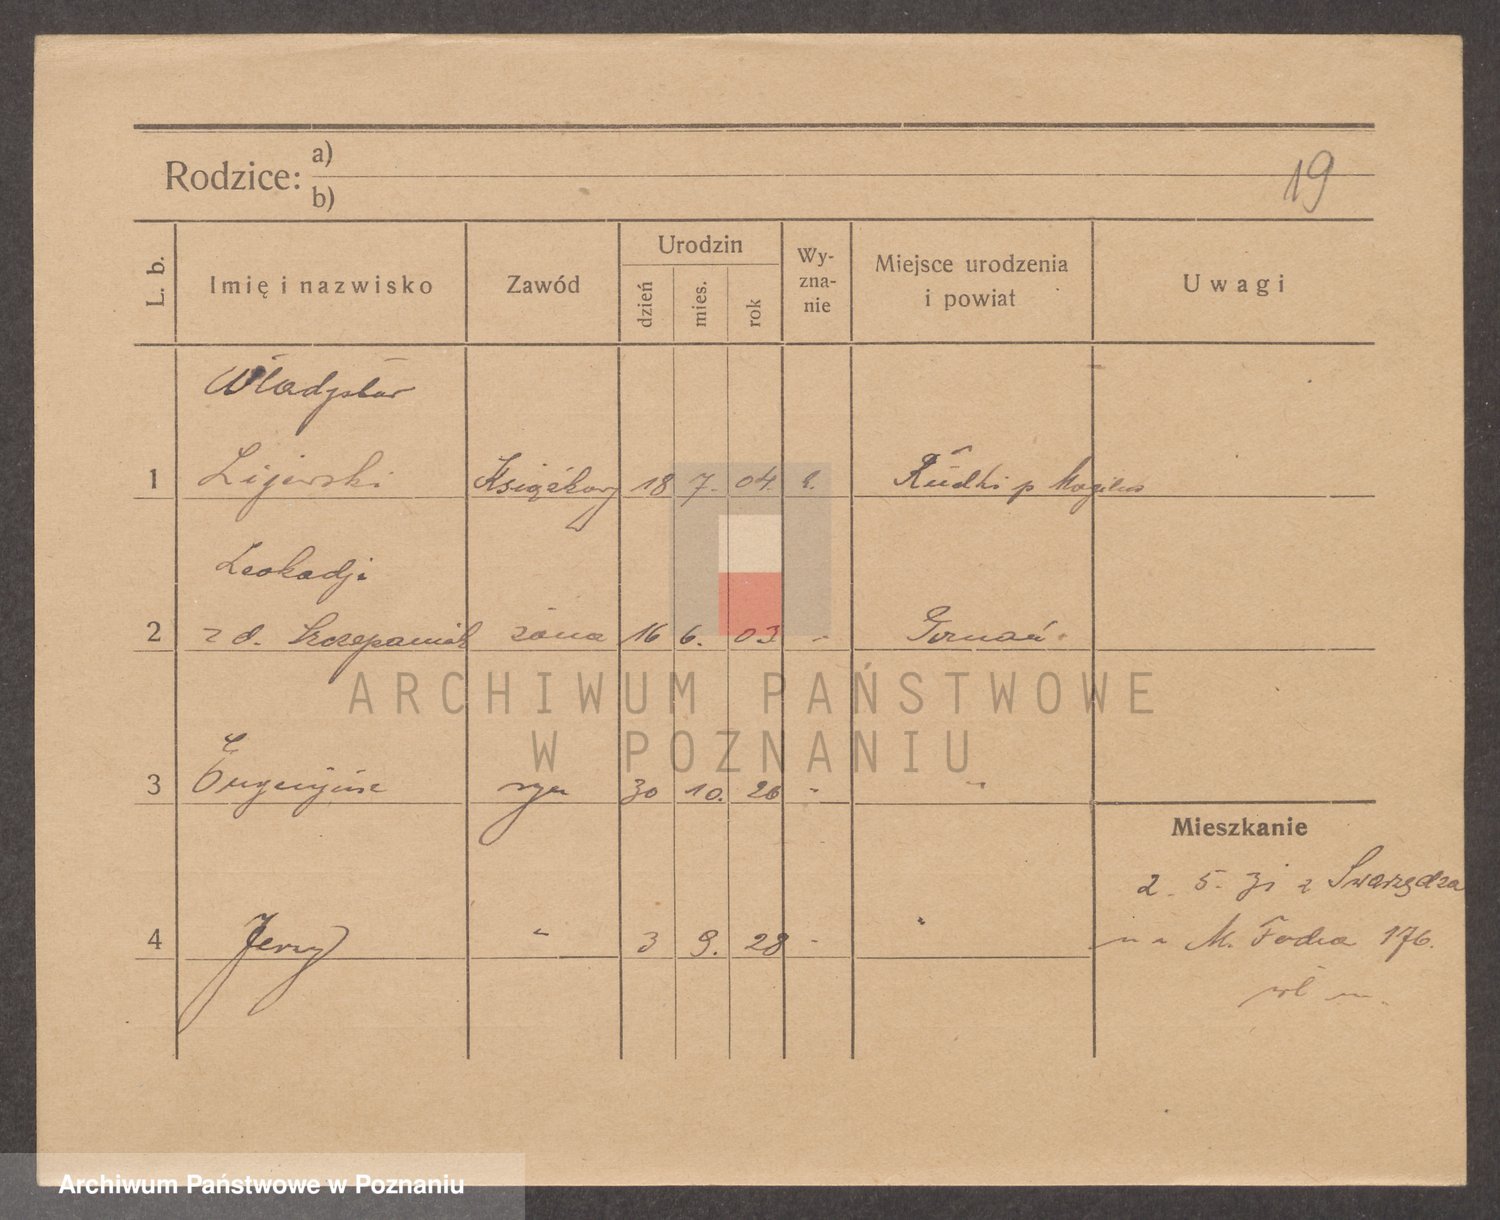 Rodzice: a)
b)
19
L. b.
Imię i nazwisko
Zawód
Urodzin
dzień
mies.
rok
Wy-
zna-
nie
Miejsce urodzenia
i powiat
Uwagi
Władysław
1 Lijewski Książkowy 18 7. 04. k. Rudki p Mogilno
Leokadja
2 z d. Szczepaniak żona 16 6. 03 " Poznań
3 Eugenjusz syn 30 10. 26 " "
4 Jerzy " 3 9. 28 " "
Mieszkanie
2. 5. 31 z Swarzędza
na M. Focha 176.
ARCHIWUM PAŃSTWOWE
W POZNANIU
Archiwum Państwowe w Poznaniu